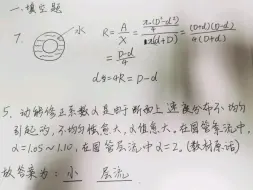 一、填空题
7.
水
R = A/X = (π(D²-d²)/4)/(π(d+D)) = (D+d)(D-d)/4(D+d)
= D-d/4
d当=4R=D-d
5、动能修正系数α是由于断面上速度分布不均匀
引起的,不均匀性愈大,α值愈大,在圆管紊流中,
α=1.05~1.10,在圆管层流中α=2。(教材原话)
故答案为:小 层流